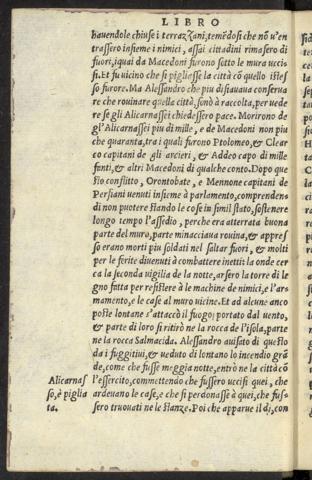 LIBRO
havendole chiuse i terrazzani, temẽdosi che nõ v'en
trassero insieme i nimici, assai cittadini rimasero di
fuori, iquai da Macedoni furono sotto le mura uccis
si. Et fu uicino che si pigliasse la città cõ quello istes
so furore. Ma Alessandro che piu disiaua conserua
re che rouinare quella città, sonò à raccolta, per uede
re se gli Alicarnassei chiedessero pace. Morirono de
gl'Alicarnassei piu di mille, e de Macedoni non piu
che quaranta, tra i quali furono Ptolomeo, & Clear
co capitani de gli arcieri, & Addeo capo di mille
fanti, & altri Macedoni di qualche conto. Dopo que
sto conflitto, Orontobate, e Mennone capitani de
Persiani uenuti insieme à parlamento, comprenden
di non puotere stando le cose in simil stato, sostenere
longo tempo l'assedio, perche era atterrata buona
parte del muro, parte minacciaua rouina, & appres
so erano morti piu soldati nel saltar fuori, & molti
per le ferite diuenuti à combattere inetti la onde cer
ca la seconda vigilia de la notte, arsero la torre di le
gno fatta per resistere à le machine de nimici, e l'ar
mamento, e le case al muro uicine. Et ad alcune anco
poste lontane s'attaccò il fuogo; portato dal uento,
& parte di loro si ritirò ne la rocca de l'isola, parte
ne la rocca Salmacida. Alessandro auisato di questo
da i fuggitiui, & veduto di lontano lo incendio grã
de, come che fusse meggia notte, entrò ne la città cõ
Alicarnas l'essercito, commettendo che fussero uccisi quei, che
so, è piglia ardeuano le case, e che si perdonasse à quei, che fus
ta. sero truouati ne le stanze. Poi che apparue il dì, con